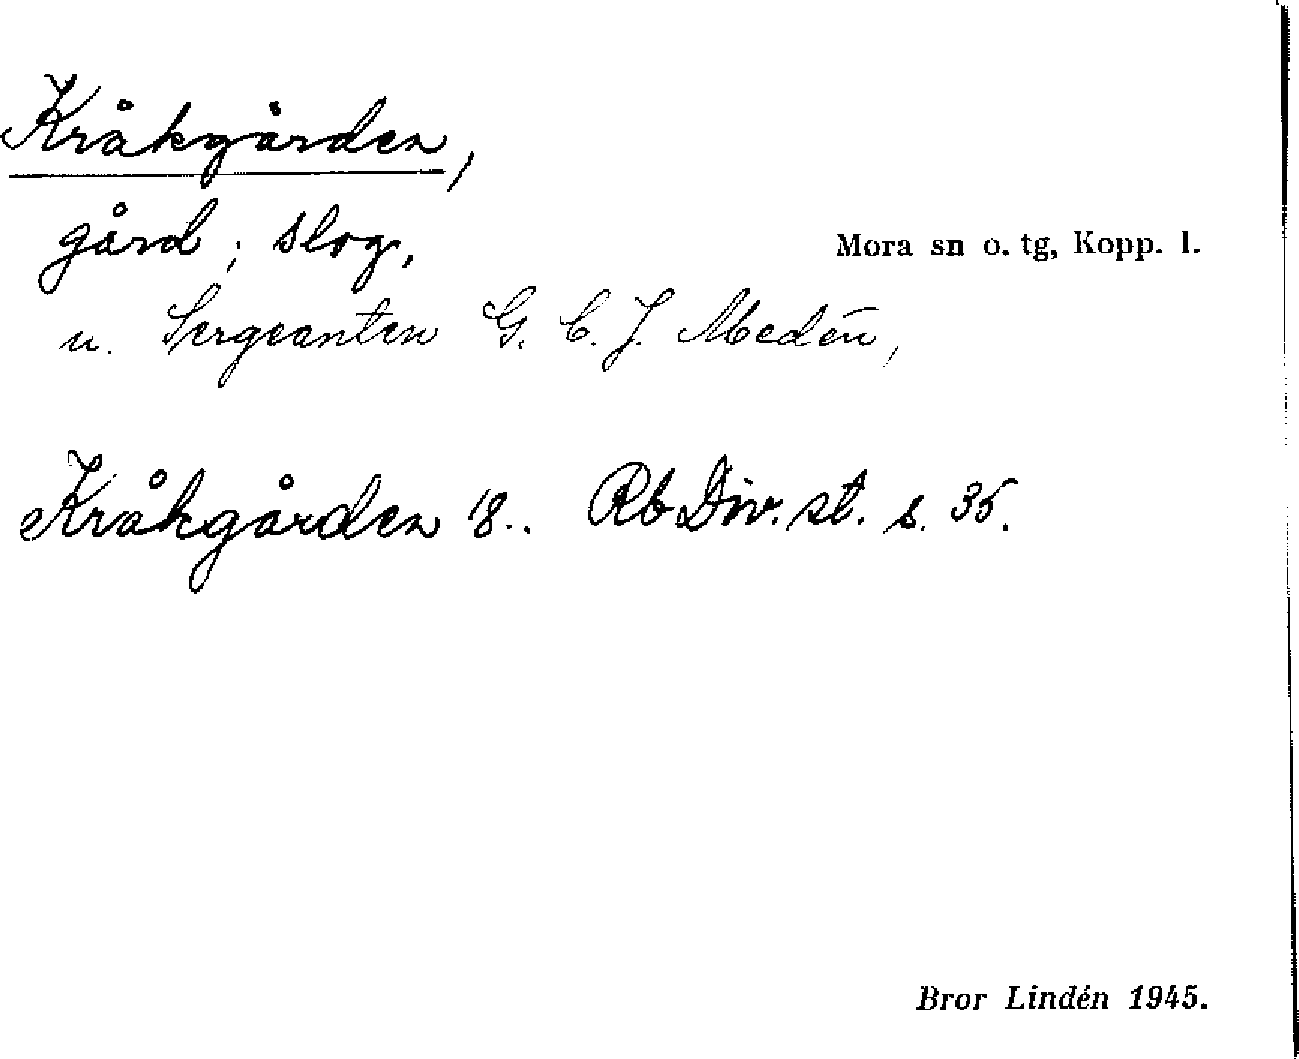 Kråkgården,
gård; slog,
Mora sn o. tg, Kopp. l.
u. Sergeanten G. C. J. Medén,
Kråkgården 18.. Rb Div. st. s. 35.
Bror Lindén 1945.